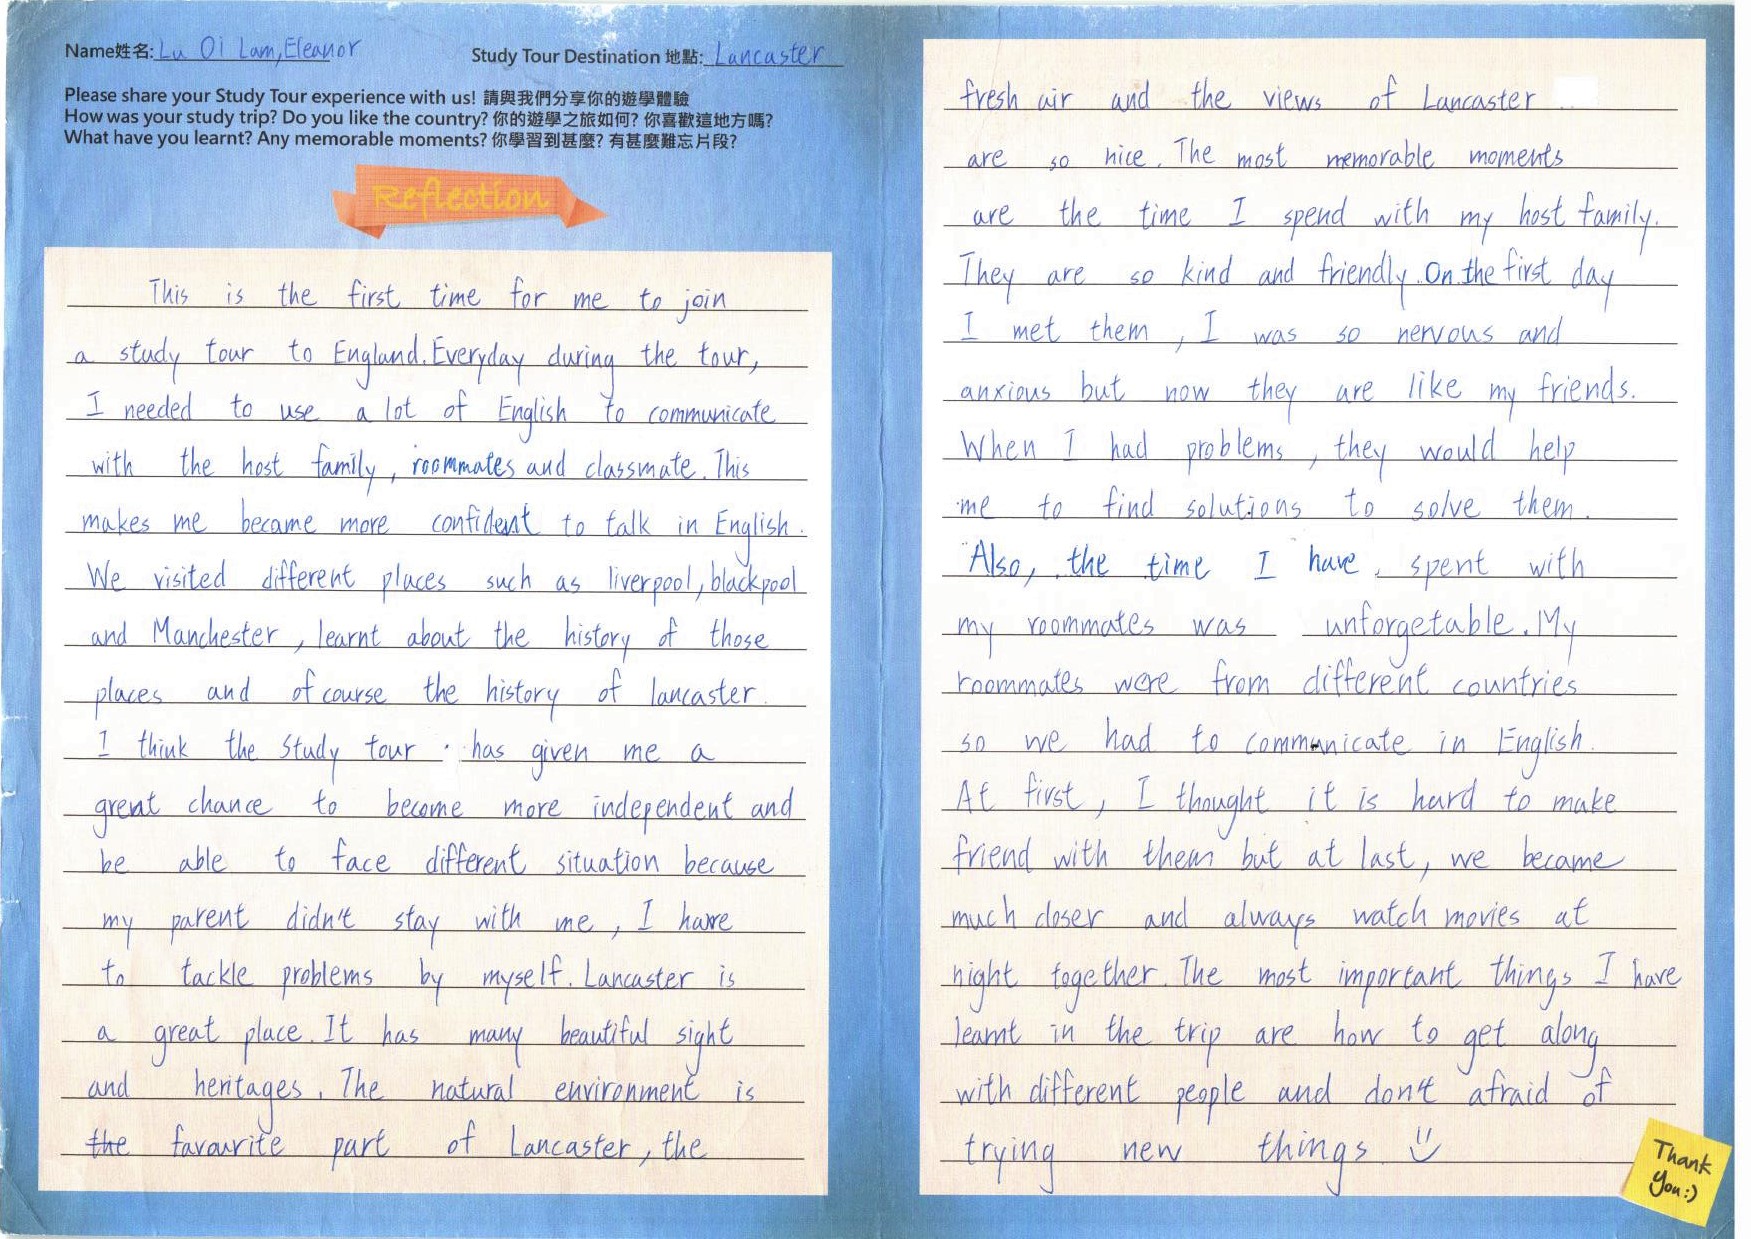 Name姓名: Lu Oi Lam, Eleanor
Study Tour Destination 地點: Lancaster
Please share your Study Tour experience with us! 請與我們分享你的遊學體驗
How was your study trip? Do you like the country? 你的遊學之旅如何? 你喜歡這地方嗎?
What have you learnt? Any memorable moments? 你學習到甚麼? 有甚麼難忘片段?
Reflection
This is the first time for me to join
a study tour to England. Everyday during the tour,
I needed to use a lot of English to communicate
with the host family, roommates and classmate. This
makes me became more confident to talk in English.
We visited different places such as liverpool, blackpool
and Manchester, learnt about the history of those
places and of course the history of lancaster.
I think the study tour has given me a
great chance to become more independent and
be able to face different situation because
my parent didn't stay with me, I have
to tackle problems by myself. Lancaster is
a great place. It has many beautiful sight
and heritages. The natural environment is
the favourite part of Lancaster, the
fresh air and the views of Lancaster
are so nice. The most memorable moments
are the time I spend with my host family.
They are so kind and friendly. On the first day
I met them, I was so nervous and
anxious but now they are like my friends.
When I had problems, they would help
me to find solutions to solve them.
Also, the time I have spent with
my roommates was unforgetable. My
roommates were from different countries
so we had to communicate in English.
At first, I thought it is hard to make
friend with them but at last, we became
much closer and always watch movies at
night together. The most important things I have
learnt in the trip are how to get along
with different people and don't afraid of
trying new things
Thank
You:)